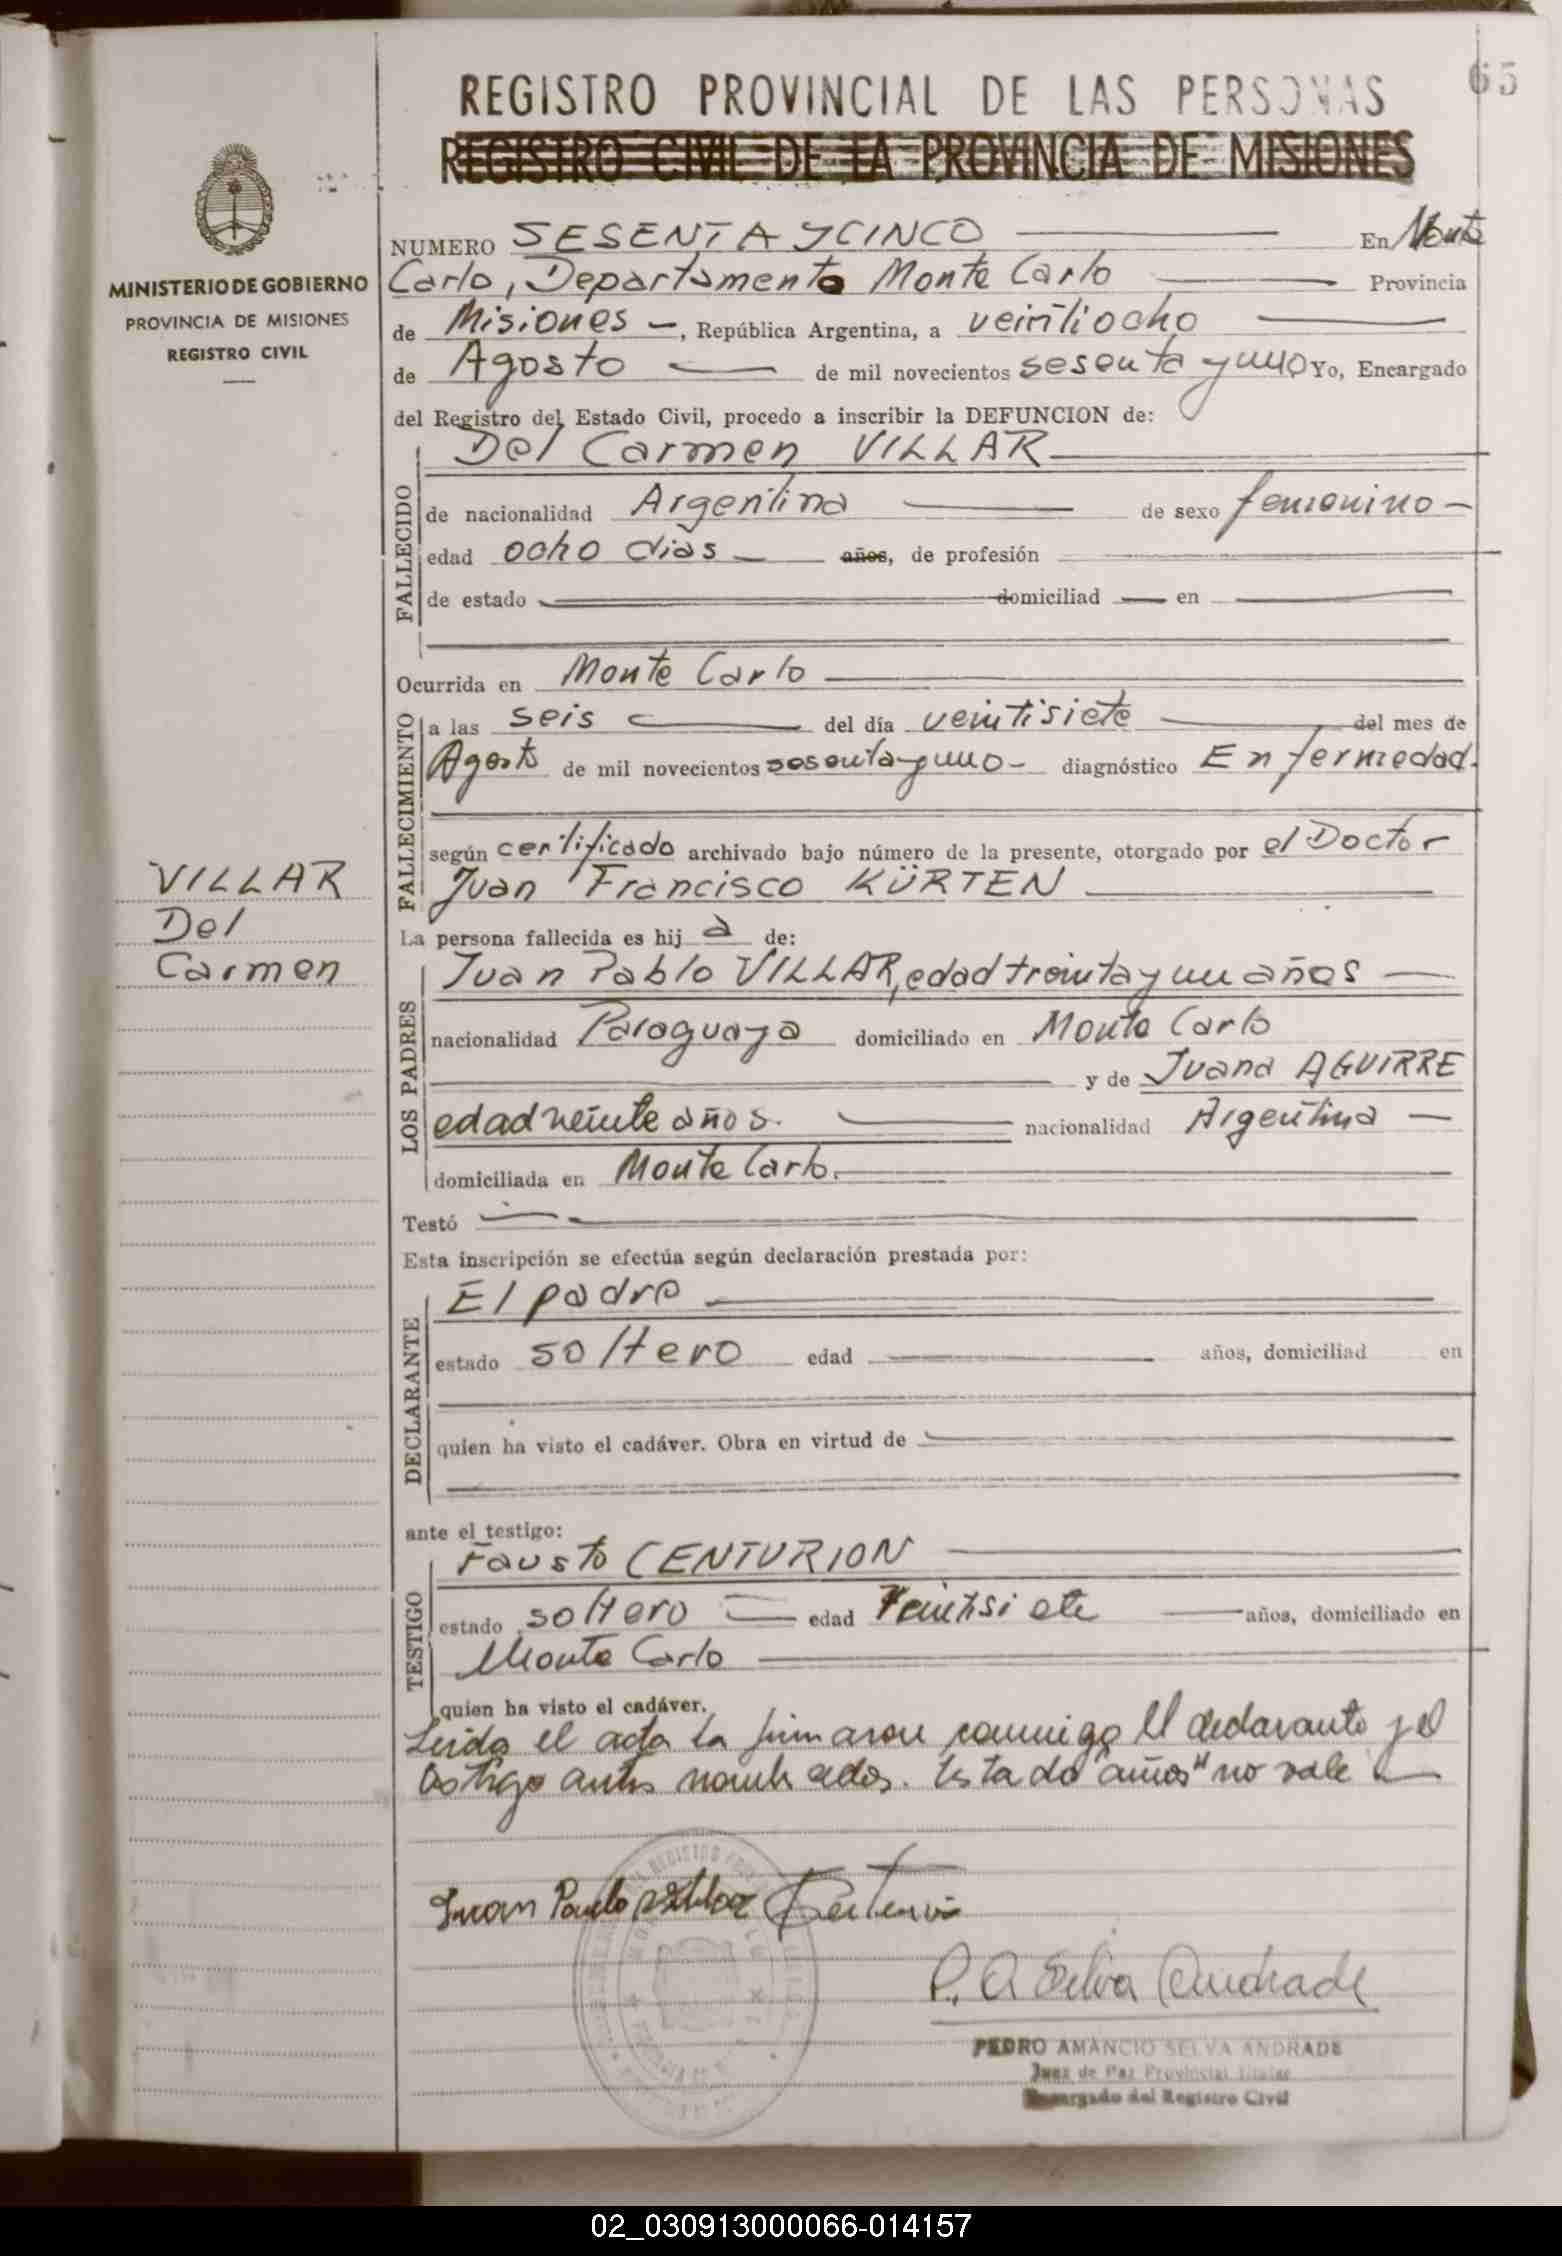 65
REGISTRO PROVINCIAL DE LAS PERSONAS
REGISTRO CIVIL DE LA PROVINCIA DE MISIONES
MINISTERIO DE GOBIERNO
PROVINCIA DE MISIONES
REGISTRO CIVIL
NUMERO SESENTA Y CINCO En Monte
Carlo, Departamento Monte Carlo Provincia
de Misiones -, República Argentina, a veintiocho
de Agosto de mil novecientos sesenta y uno Yo, Encargado
del Registro del Estado Civil, procedo a inscribir la DEFUNCION de:
FALLECIDO
Del Carmen VILLAR
de nacionalidad Argentina de sexo femenino -
edad ocho dias años, de profesión
de estado domiciliad en
Ocurrida en Monte Carlo
FALLECIMIENTO
a las seis del día veintisiete del mes de
Agosto de mil novecientos sesenta y uno - diagnóstico Enfermedad.
según certificado archivado bajo número de la presente, otorgado por el Doctor
Juan Francisco KÜRTEN
VILLAR
Del
Carmen
La persona fallecida es hij a de:
LOS PADRES
Juan Pablo VILLAR, edad treinta y un años
nacionalidad Paraguaya domiciliado en Monte Carlo
y de Juana AGUIRRE
edad veinte años. nacionalidad Argentina
domiciliada en Monte Carlo.
Testó
Esta inscripción se efectúa según declaración prestada por:
DECLARANTE
El padre
estado soltero edad años, domiciliad en
quien ha visto el cadáver. Obra en virtud de
ante el testigo:
TESTIGO
Fausto CENTURION
estado soltero edad Veintisiete años, domiciliado en
Monte Carlo
quien ha visto el cadáver.
Leida el acta la firmaron conmigo el declarante y el
testigo antes nombrados. Testado "años" no vale
Juan Pablo Villar
P. A Selva Andrade
PEDRO AMANCIO SELVA ANDRADE
Juez de Paz Provincial Titular
Encargado del Registro Civil
02_030913000066-014157